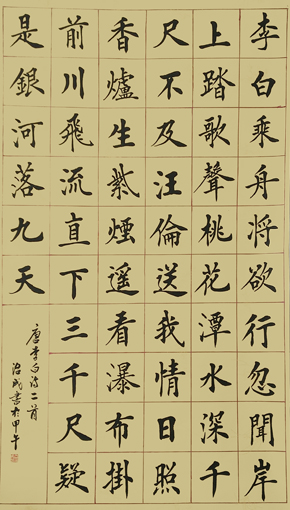 李白乘舟將欲行忽聞岸
上踏歌聲桃花潭水深千
尺不及汪倫送我情日照
香爐生紫煙遥看瀑布掛
前川飛流直下三千尺疑
是銀河落九天
唐李白诗二首
治成書於甲午